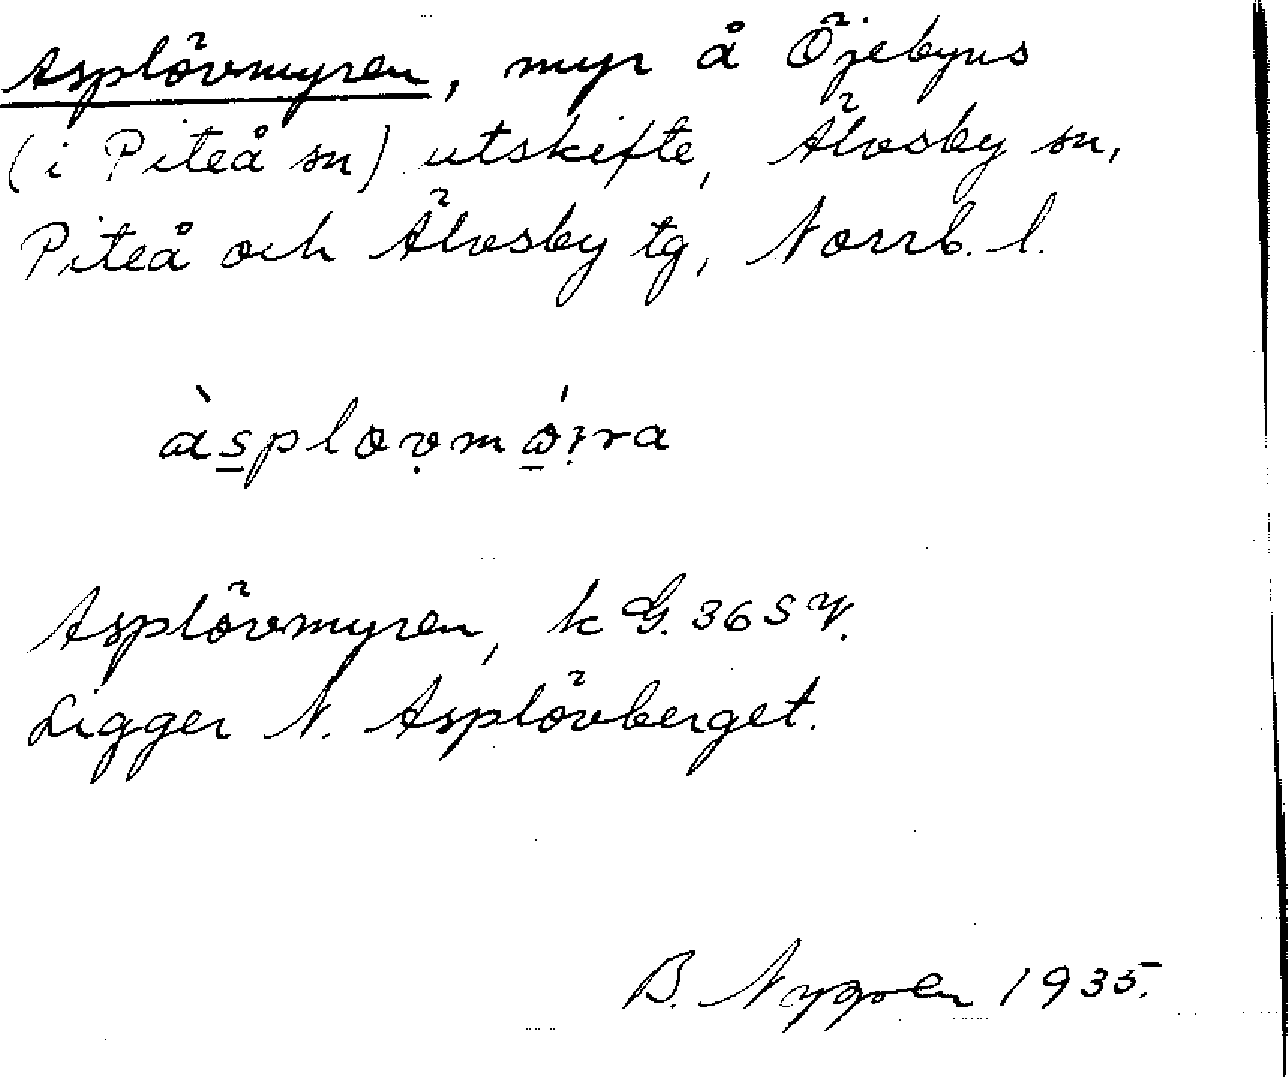 Asplövmyren, myr å Öjebyns
(i Piteå sn) utskifte, Älvsby sn,
Piteå och Älvsby tg, Norrb. l.
àsplovmóira
Asplövmyren, k G. 36 S V.
Ligger N. Asplövberget.
B. Nygren 1935.